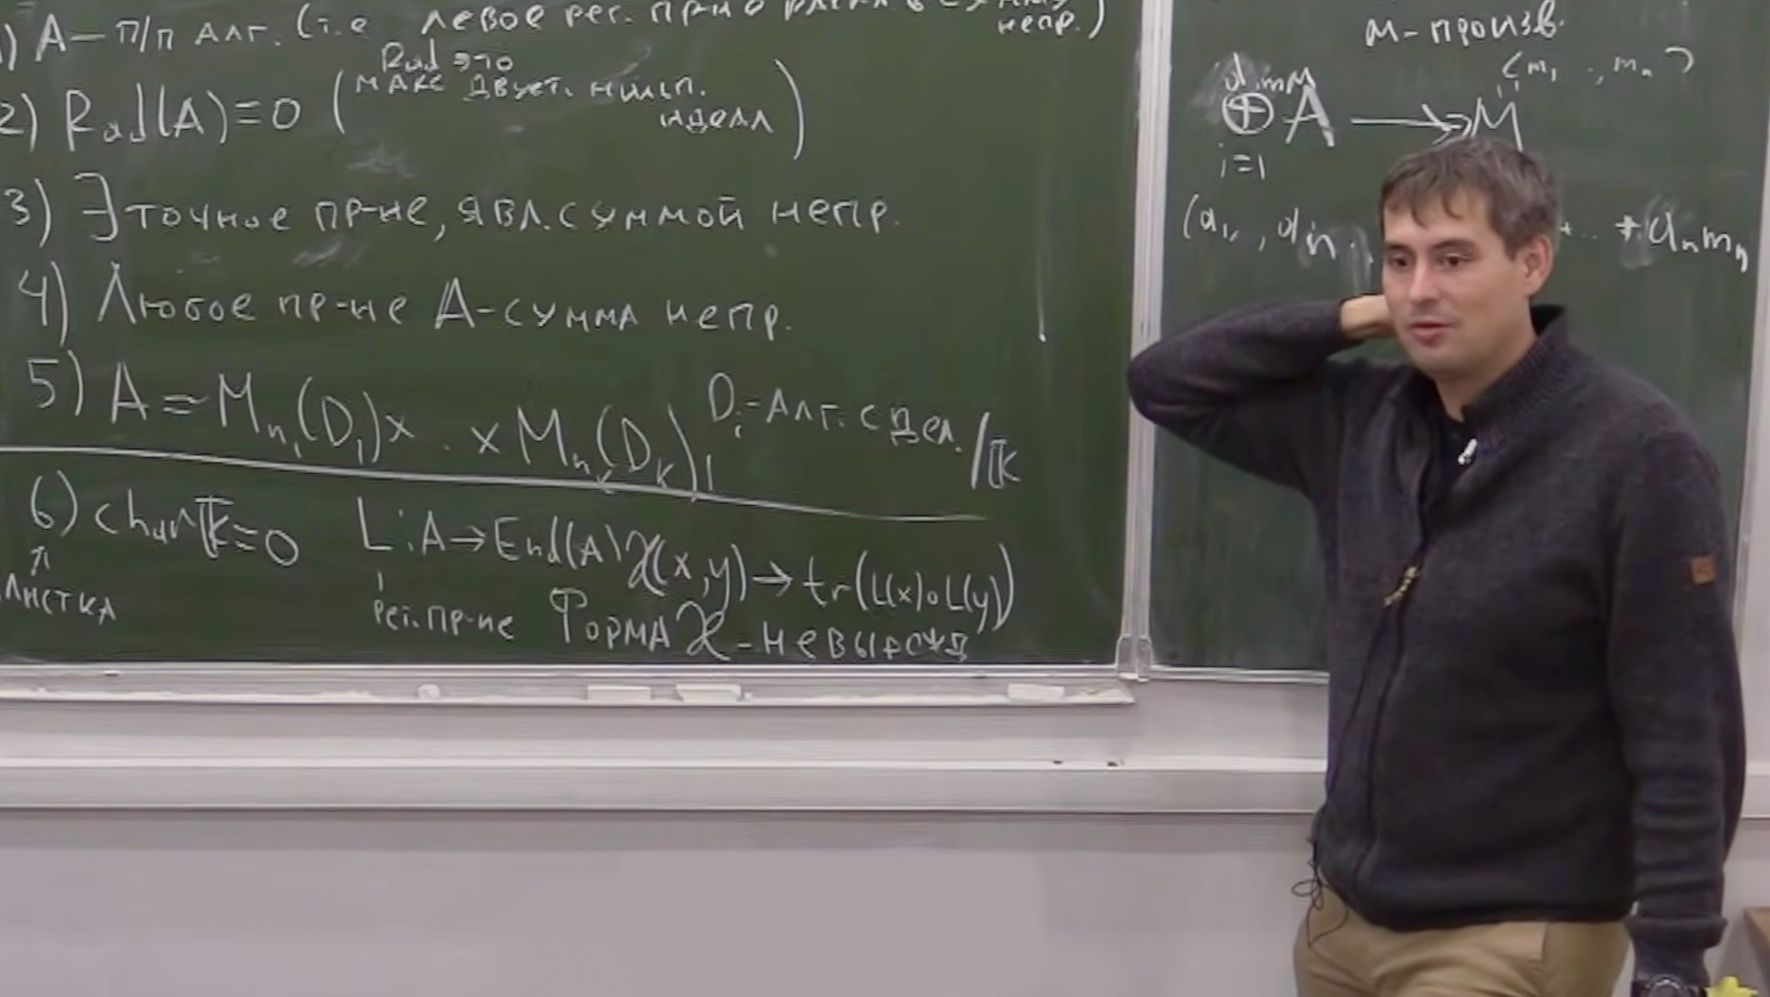 1) А – п/п алг. (i.e левое рег. пр-по
непр.)
Rad это
2) Rad(A)=0 (макс двуст. нильп.
идеал)
3) ∃ точное пр-ие, явл. суммой непр.
4) Любое пр-ие A-сумма непр.
5) A = M_{n_1}(D_1)× . ×M_{n_k}(D_k), D_i-алг. с дел./𝕜
6) char 𝕜=0 L:A→End(A) ϰ(x,y)→tr(L(x)∘L(y))
↑
листка
рег. пр-ие Форма ϰ-невырожд
M-произв.
dim M
⊕ A →→ M
i=1
⟨m_1 .., m_n⟩
(a_1, , a_n .. + a_n m_n